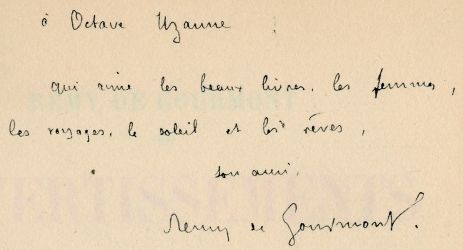 à Octave Uzanne
qui aime les beaux livres, les femmes,
les voyages, le soleil et les rêves,
son ami,
Remy de Gourmont.